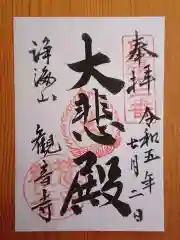 奉拝
令和五年
七月二日
大悲殿
海山
観音寺